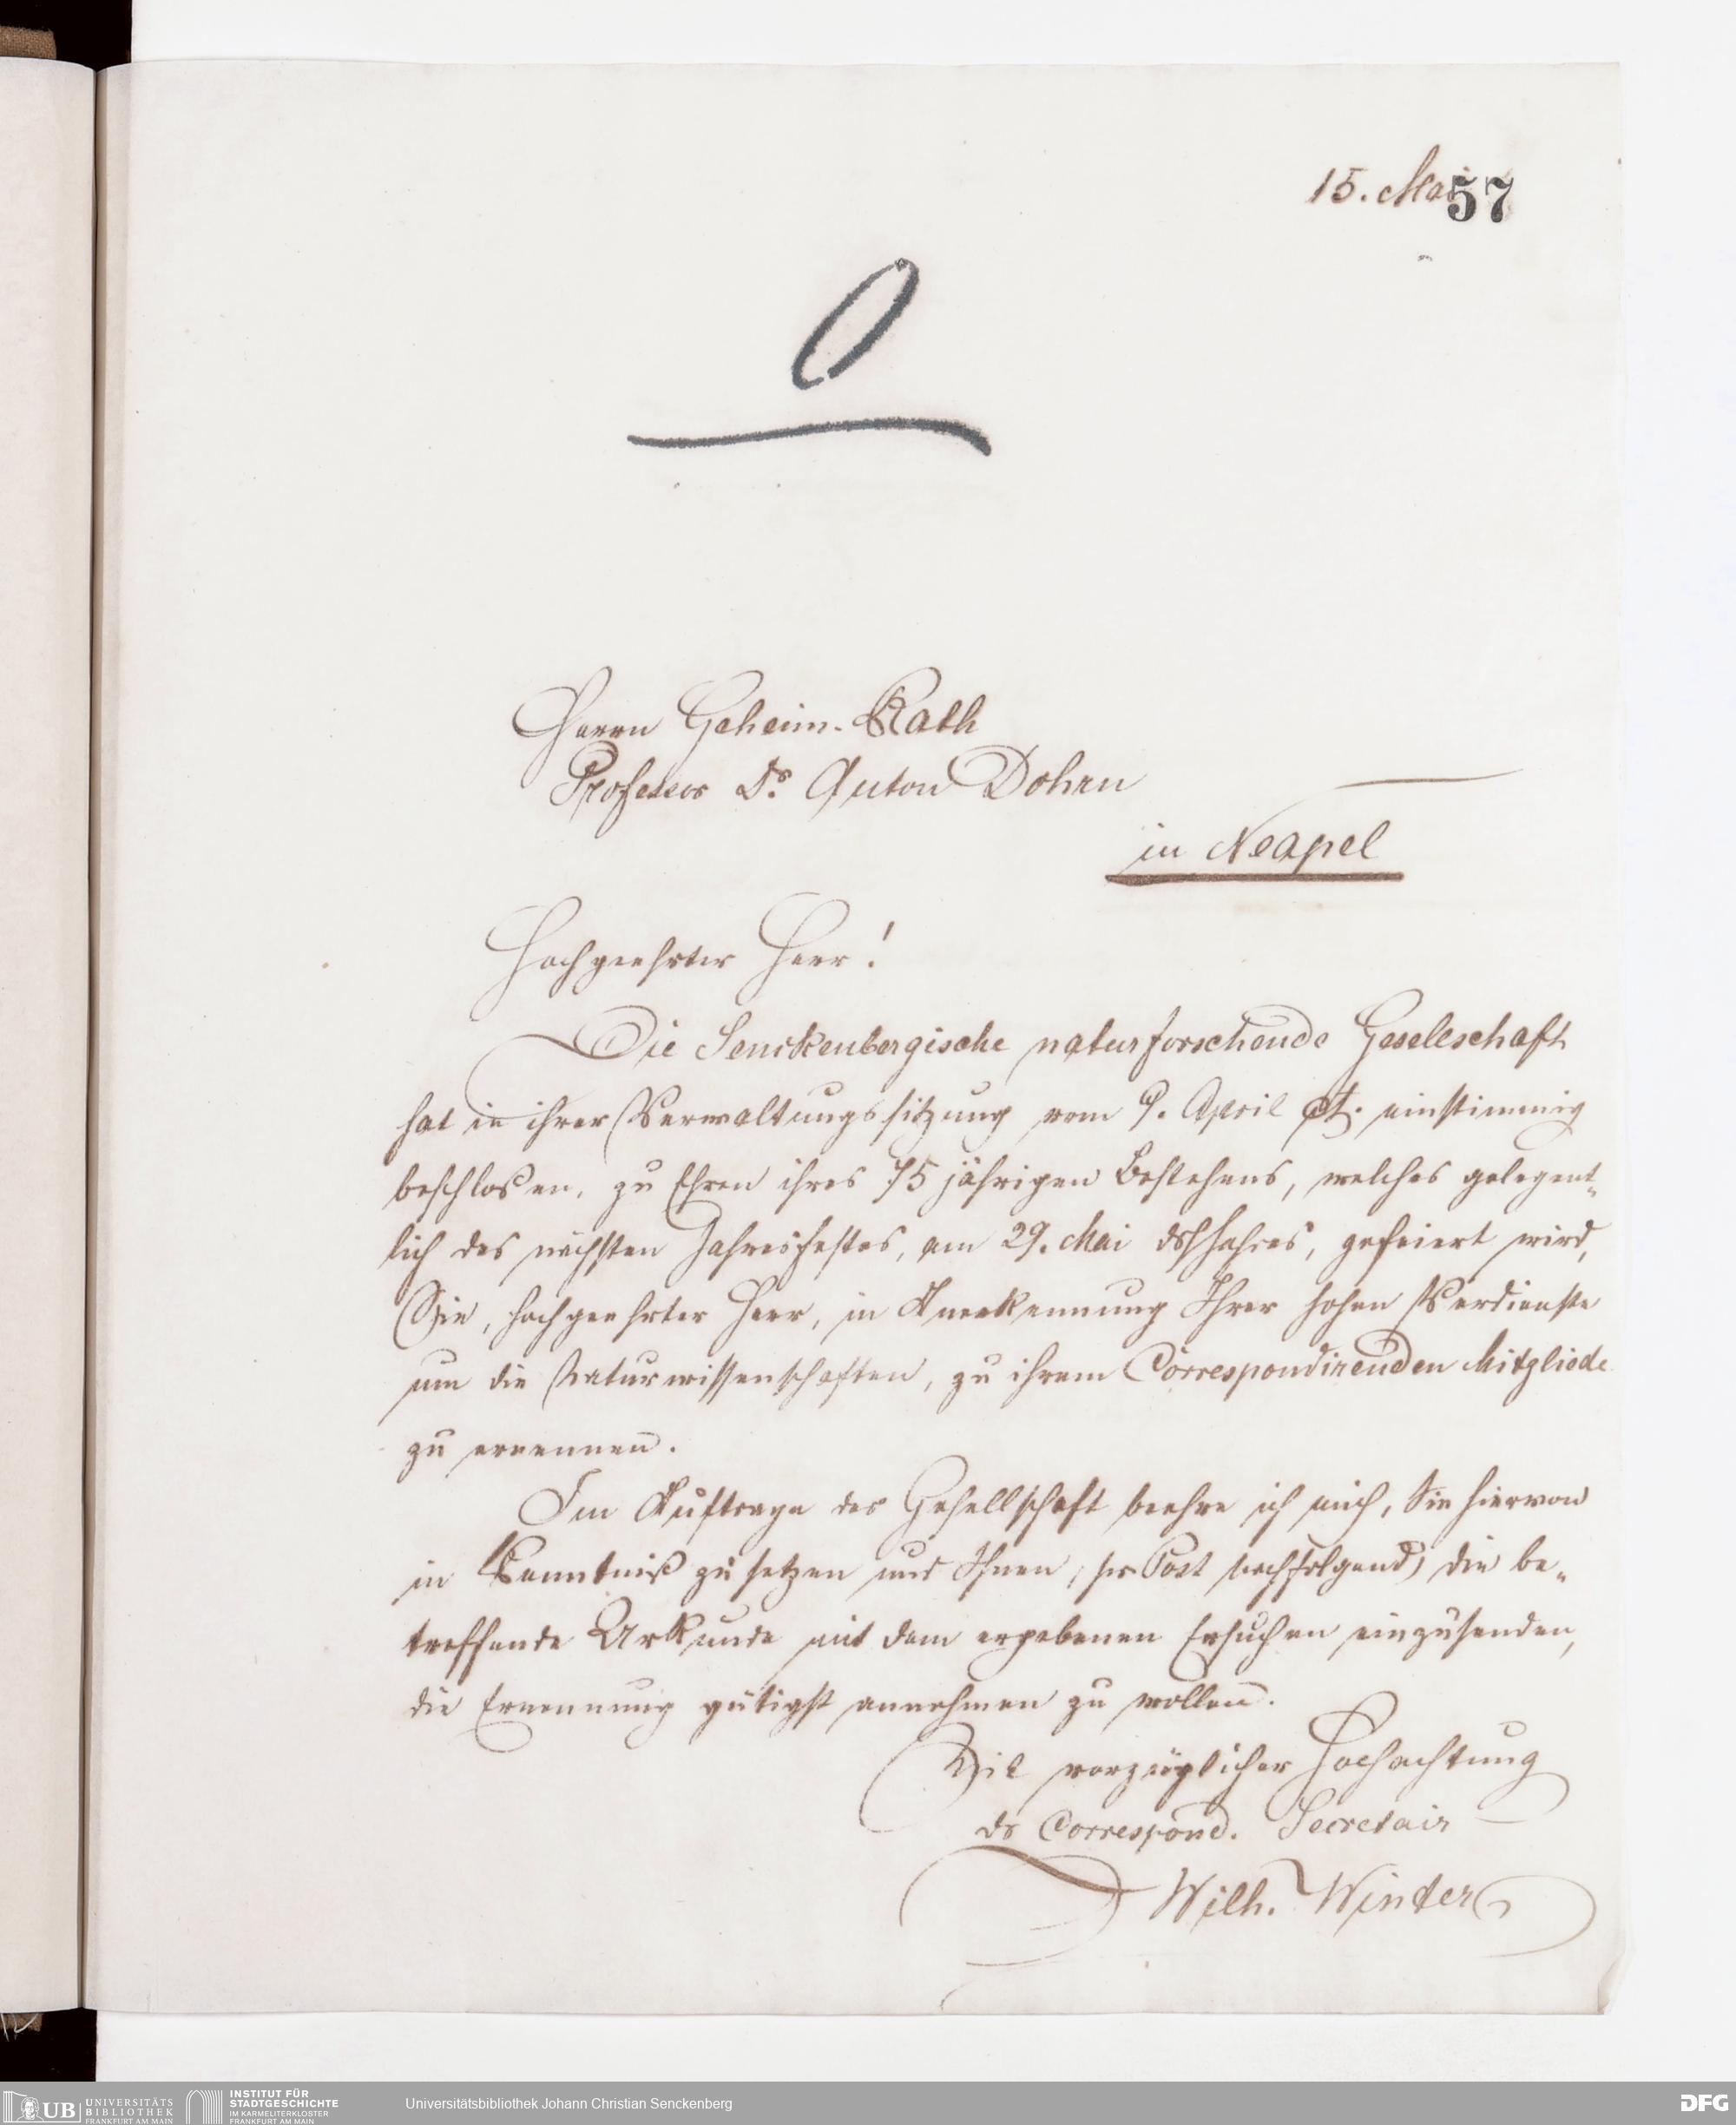 15. Mai
57
0
Herrn Geheim-Rath
Professor Dr. Anton Dohrn
in Neapel
Hochgeehrter Herr!
Die Senckenbergische naturforschende Gesellschaft
hat in ihrer Verwaltungssitzung vom 9. April ct. einstimmig
beschloßen, zu Ehren ihres 75 jährigen Bestehens, welches gelegent-
lich des nächsten Jahresfestes, am 29. Mai ds Jahres, gefeiert wird,
Sie, hochgeehrter Herr, in Anerkennung Ihrer hohen Verdienste
um die Naturwissenschaften, zu ihrem Correspondirenden Mitgliede
zu ernennen.
Im Auftrage der Gesellschaft beehre ich mich, Sie hiervon
in Kenntniß zu setzen und Ihnen, pr. Post nachfolgend, die be-
treffende Urkunde mit dem ergebenen Ersuchen einzusenden,
die Ernennung gütigst annehmen zu wollen.
Mit vorzüglicher Hochachtung
dr Correspond. Secretair
Wilh. Winter
UB UNIVERSITÄTS
BIBLIOTHEK
FRANKFURT AM MAIN
INSTITUT FÜR
STADTGESCHICHTE
IM KARMELITERKLOSTER
FRANKFURT AM MAIN
Universitätsbibliothek Johann Christian Senckenberg
DFG